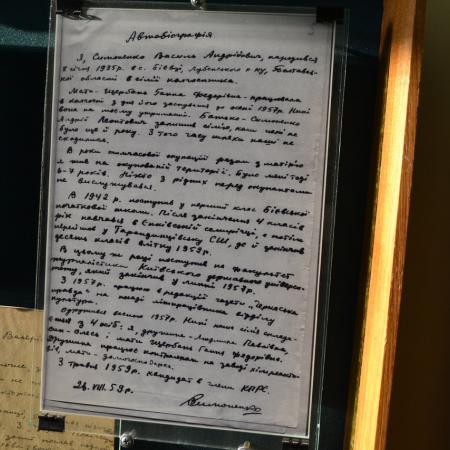 Автобіографія
Я, Симоненко Василь Андрійович, народився
8 січня 1935 р. в с. Біївці, Лубенського р-ну, Полтавсь-
кої області в сім'ї колгоспника.
Мати – Щербань Ганна Федорівна – працювала
в колгоспі з дня його заснування до осені 1957 р. Нині
вона на моєму утриманні. Батько – Симоненко
Андрій Леонтович залишив сім'ю, коли мені не
було ще й року. З того часу шляхи наші не
сходились.
В роки тимчасової окупації разом з матір'ю
я жив на окупованій території. Було мені тоді
6-7 років. Ніхто з рідних перед окупантами
не вислужувався.
В 1942 р. поступив у перший клас Біївської
початкової школи. Після закінчення 4 класів
рік навчався в Єнківській семирічці, а потім
перейшов у Тарандинцівську СШ, де й закінчив
десять класів влітку 1952 р.
В цьому ж році поступив на факультет
журналістики Київського державного універси-
тету, який закінчив у липні 1957 р.
З 1957 р. працюю в редакції газети „Черкаська
правда" на посаді літпрацівника відділу
культури.
Одружився весною 1957 р. Нині моя сім'я склада-
ється з 4 осіб: я, дружина – Людмила Павлівна,
син – Олесь, мати – Щербань Ганна Федорівна.
Дружина працює контролером на заводі
мати – домогосподарка.
З травня 1959 р. кандидат в члени КПРС.
26. VIII. 59 р.
Симоненко